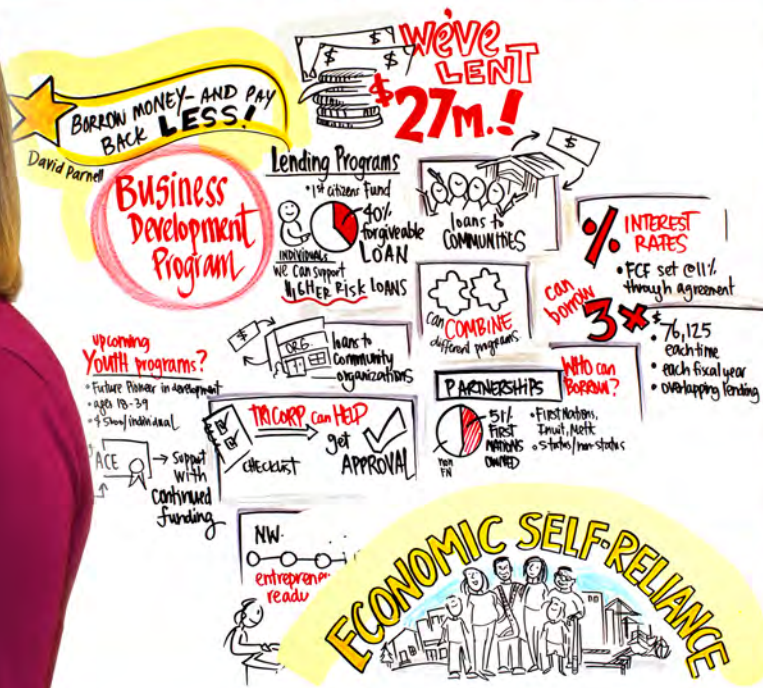 WE'VE
LENT
$27M.!
BORROW MONEY-AND PAY
BACK LESS!
David Parnell
BUSINESS
Development
Program
Lending Programs
• 1st citizens fund
40%
forgiveable
LOAN
INDIVIDUALS
We can support
HIGHER RISK LOANS
$
loans to
COMMUNITIES
% INTEREST
RATES
• FCF set @11%
through agreement
can
borrow
3x
$76,125
each time
• each fiscal year
• overlapping lending
can COMBINE
different programs
$
ORG.
loans to
community
organizations
upcoming
YOUTH programs?
• Future Pioneer in development
• ages 18-39
ACE → Support
with
continued
funding
TRICORP can HELP
CHECKLIST
get
APPROVAL
PARTNERSHIPS
51%
FIRST
NATIONS
OWNED
non
FN
WHO can
BORROW?
• First Nations,
Inuit, Metis
• Status/non-status
NW.
entreprene
readi
ECONOMIC SELF-RELIANCE